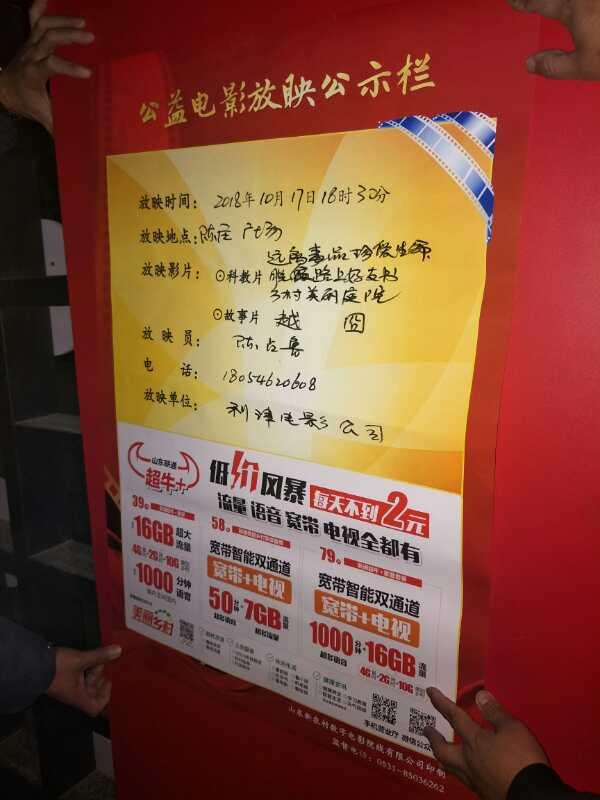 公益电影放映公示栏
放映时间: 2018年10月17日18时30分
放映地点: 陈庄广场
远离毒品 珍爱生命
放映影片: ⊙科教片
乡村美丽庭院
⊙故事片 越囧
放映员: 陈占鲁
电话: 18054620608
放映单位: 利津电影公司
山东联通
超牛+
低价风暴 每天不到2元
流量 语音 宽带 电视全都有
39
16GB 超大流量
4G+2G+10G
1000 分钟语音
美丽乡村
58
宽带智能双通道
宽带+电视
50分钟+7GB流量
超多语音 超多流量
79
宽带智能双通道
宽带+电视
1000分钟+16GB流量
超多语音 4G+2G+10G
手机营业厅 微信公众
山东新农村数字电影院线有限公司印制
监督电话: 0531-85036262